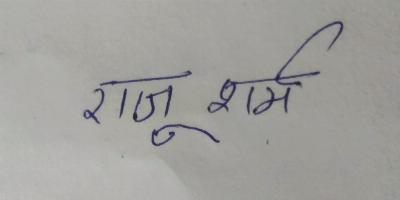 राजू शर्म